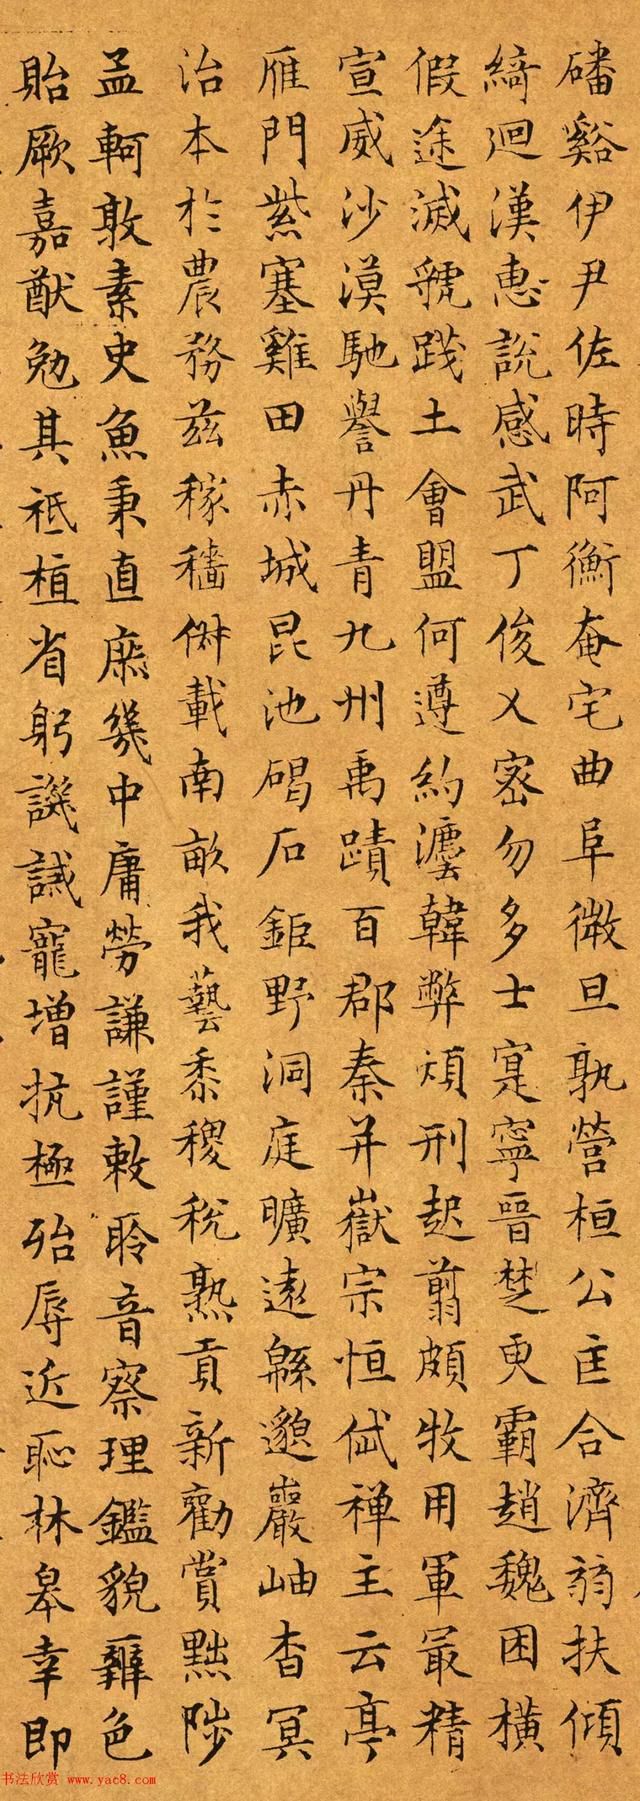 磻谿伊尹佐時阿衡奄宅曲阜微旦孰營桓公匡合濟弱扶傾
綺迴漢惠說感武丁俊乂密勿多士寔寧晉楚更霸趙魏困橫
假途滅虢踐土會盟何遵約灋韓弊煩刑起翦頗牧用軍最精
宣威沙漠馳譽丹青九州禹蹟百郡秦并嶽宗恒岱禅主云亭
雁門紫塞雞田赤城昆池碣石鉅野洞庭曠遠緜邈巖岫杳冥
治本於農務茲稼穡俶載南畝我藝黍稷稅熟貢新勸賞黜陟
孟軻敦素史魚秉直庶幾中庸勞謙謹敕聆音察理鑑貌辨色
貽厥嘉猷勉其祗植省躬譏誡寵增抗極殆辱近恥林皋幸即
书法欣赏 www.yac8.com